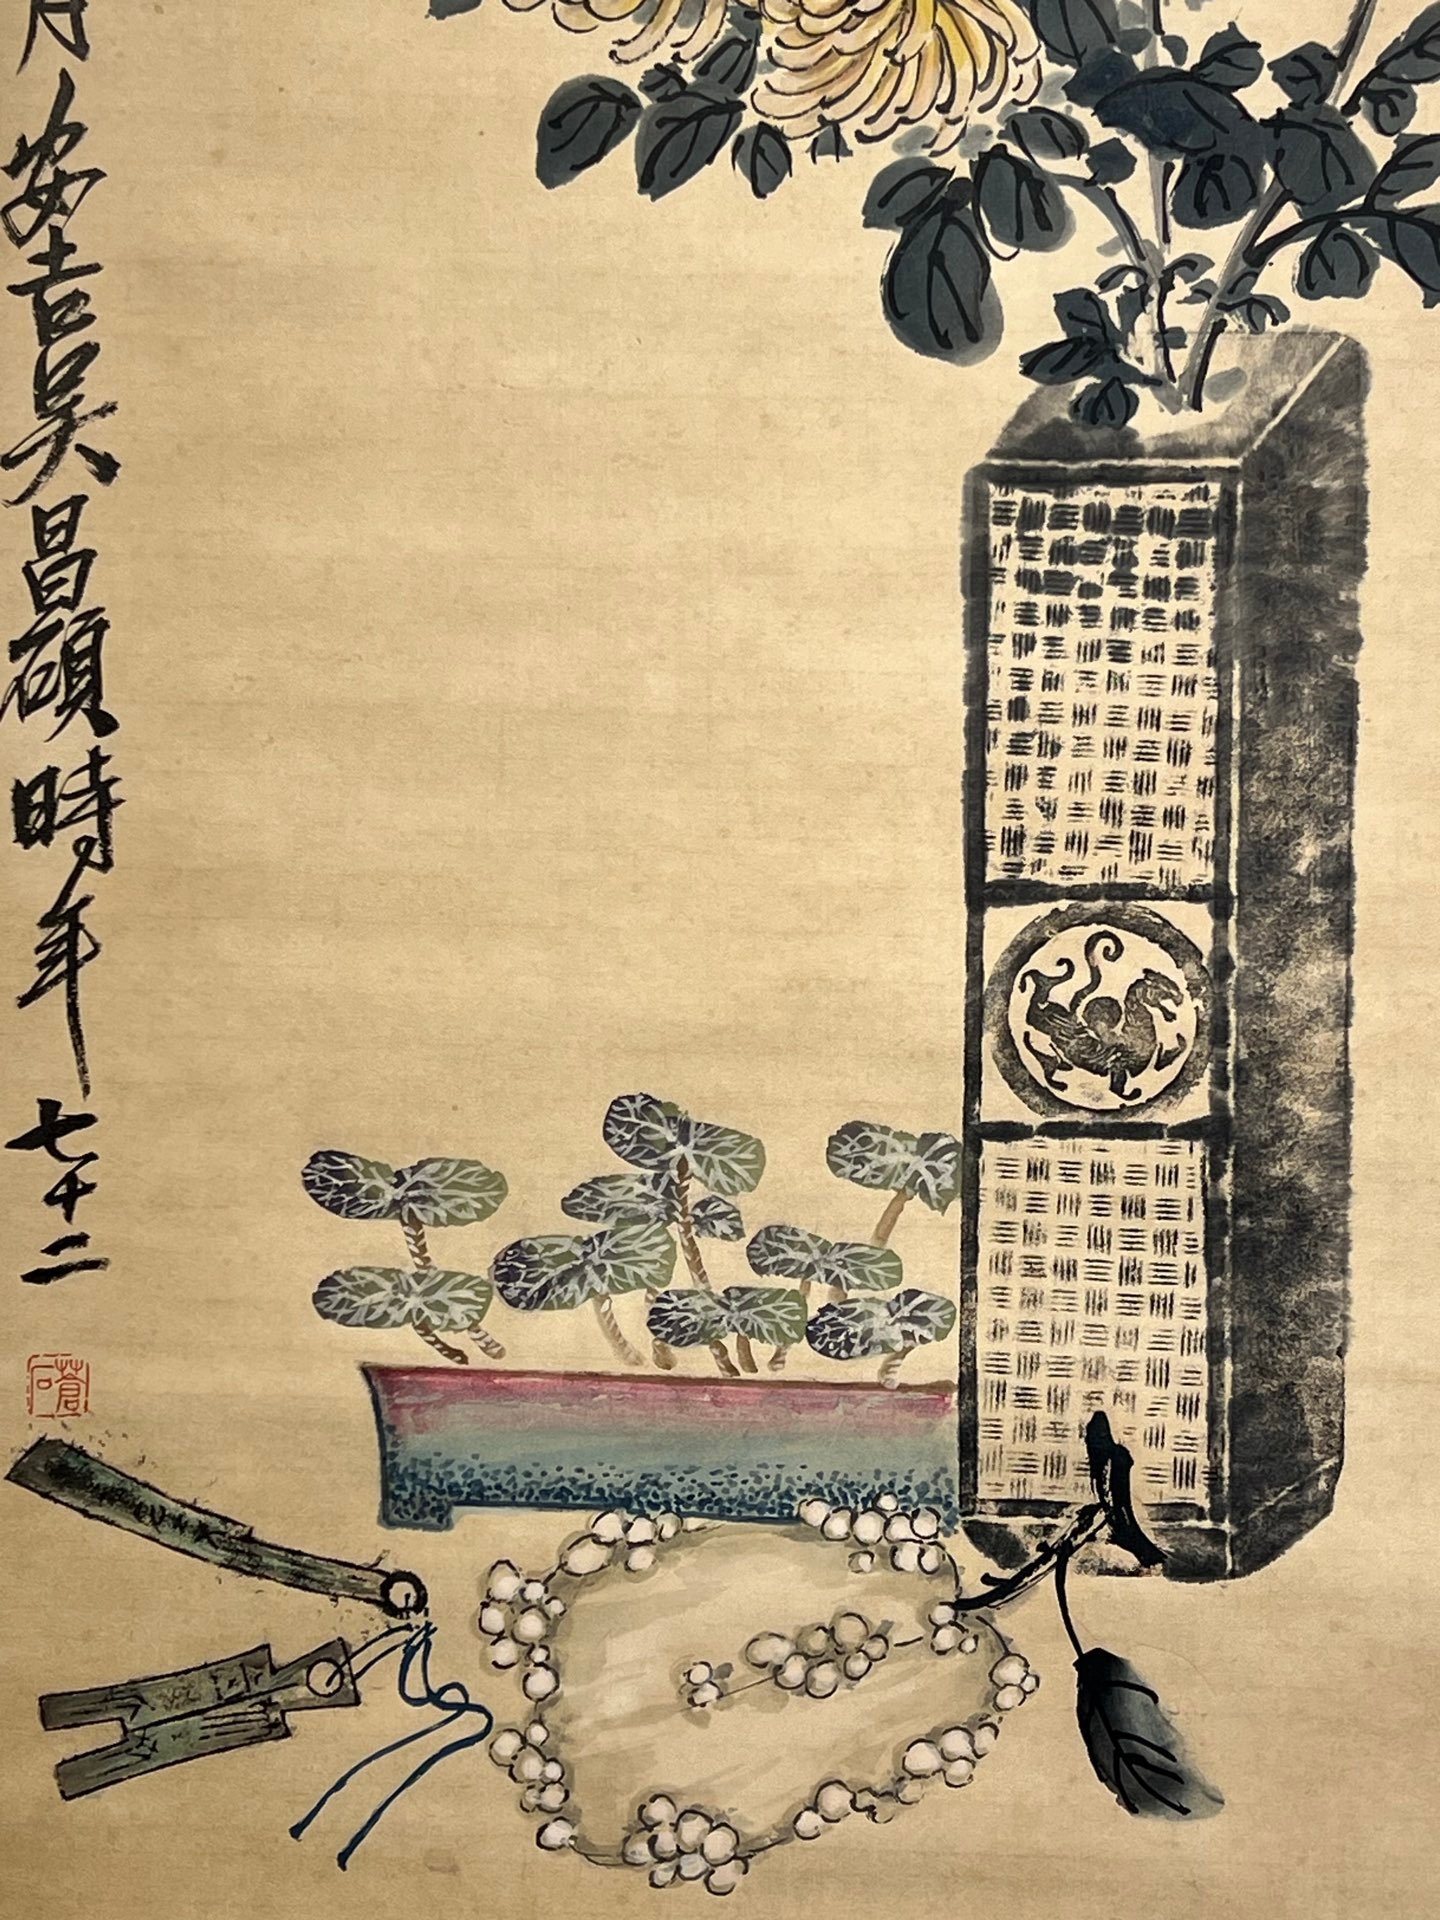 月安吉吳昌碩時年七十二
蒼石